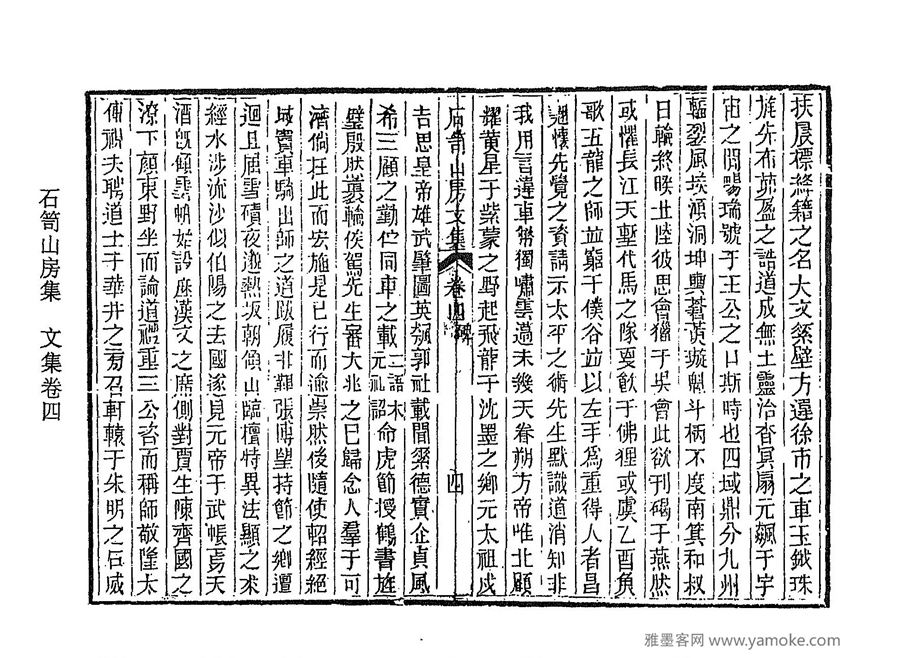 扶晨標絳籍之名大文繇壁方遲徐市之車玉鉞珠
旄先布茆盈之誥道成無上靈洽杳冥扇元飆于宇
宙之間暢瑞號于王公之口斯時也四域鼎分九州
輻裂風埃澒洞坤輿蒼黃璇魁斗柄不度南箕和叔
日輪終暌北陸彼思會獵于吳會此欲刊碣于燕然
或懼長江天塹代馬之隊耍飲于佛狸或虞乙酉負
歌五龍之師並窮于僕谷並以左手為重得人者昌
翹懷先覺之資請示太平之術先生默識道消知非
我用言違車幣獨嘯雲邁未幾天眷朔方帝唯北顧
耀黃星于紫蒙之野起飛龍于沈墨之鄉元太祖成
石笥山房文集 卷四 四
吉思皇帝雄武肇圖英飆郭社載聞粢德實企貞風
希三顧之勤佇同車之載二語本元祖詔命虎節授鶴書旌
璧殷狀蓑輪俟駕先生審大兆之已歸念人羣于可
濟倘枉此而安施是已行而逾崇然後隨使軺經絕
域賣車騎出師之道跋履非難張博望持節之鄉遭
迴且届雪磧夜邀熱坂朝傾山臨檀特異法顯之求
經水涉流沙似伯陽之去國遂見元帝于武帳焉天
酒旣傾雲帆始設庶漢文之席側對賈生陳齊國之
潦下顏東野坐而論道禮重三公咨而稱師敬隆太
傅衵夫聘道士于華井之旁召軒轅于朱明之石咸
石笥山房集 文集卷四
雅墨客网 www.yamoke.com